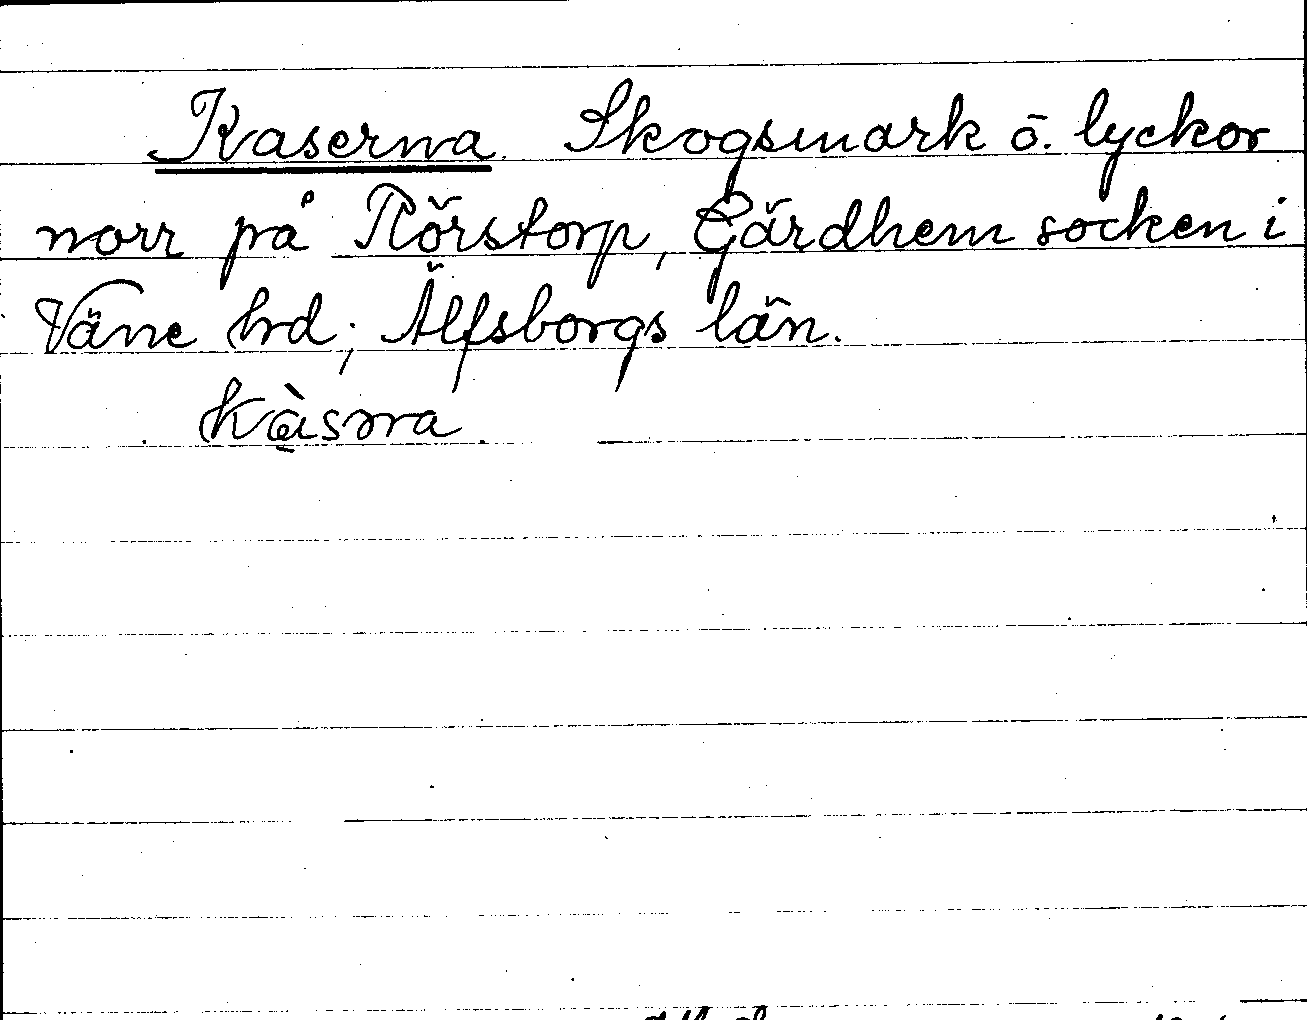 Kaserna. Skogsmark o. lyckor
norr på Rörstorp, Gärdhem socken i
Väne hrd; Älfsborgs län.
kàsṇa.